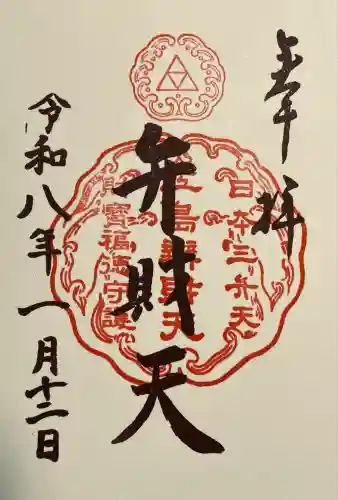 奉拝
日本三弁天
江島辨財天
財寶福徳守護
弁財天
令和八年一月十二日